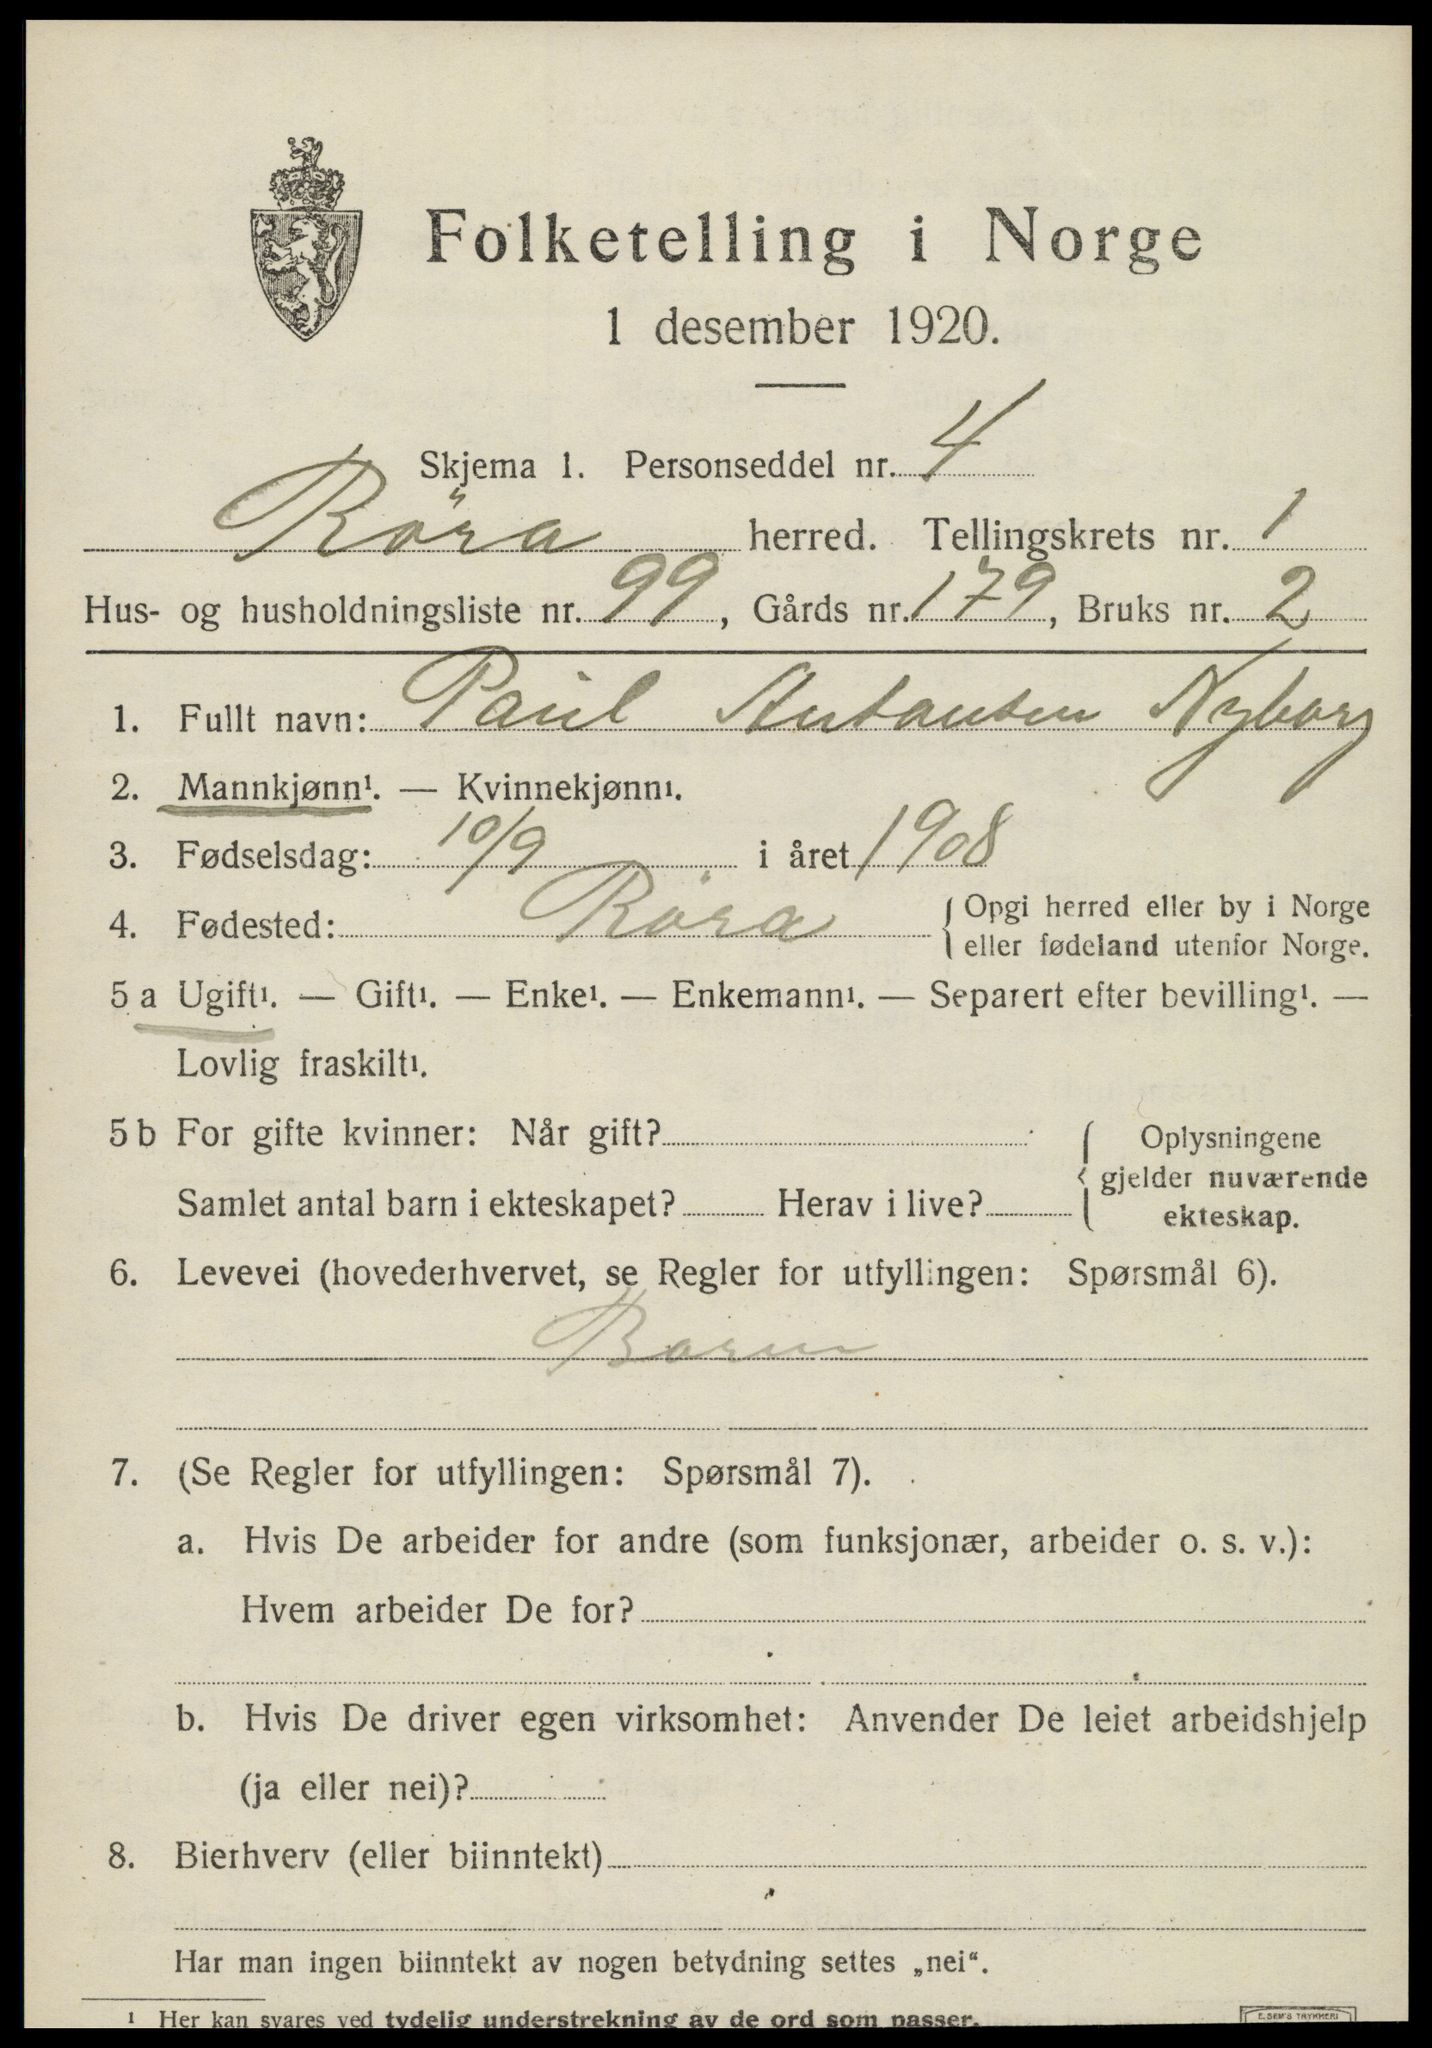 Folketelling i Norge
1 desember 1920.
Skjema 1. Personseddel nr. 4
Röra herred. Tellingskrets nr. 1
Hus- og husholdningsliste nr. 99, Gårds nr. 179, Bruks nr. 2
1. Fullt navn: Paul Antonsen Nyborg
2. Mannkjønn¹. — Kvinnekjønn¹.
3. Fødselsdag: 10/9 i året 1908
4. Fødested: Röra { Opgi herred eller by i Norge
eller fødeland utenfor Norge.
5 a Ugift¹. — Gift¹. — Enke¹. — Enkemann¹. — Separert efter bevilling¹. —
Lovlig fraskilt¹.
5 b For gifte kvinner: Når gift? { Oplysningene
gjelder nuværende
Samlet antal barn i ekteskapet? Herav i live? ekteskap.
6. Levevei (hovederhvervet, se Regler for utfyllingen: Spørsmål 6).
Barn
7. (Se Regler for utfyllingen: Spørsmål 7).
a. Hvis De arbeider for andre (som funksjonær, arbeider o. s. v.):
Hvem arbeider De for?
b. Hvis De driver egen virksomhet: Anvender De leiet arbeidshjelp
(ja eller nei)?
8. Bierhverv (eller biinntekt)
Har man ingen biinntekt av nogen betydning settes „nei“.
¹ Her kan svares ved tydelig understrekning av de ord som passer.
E. SEM'S TRYKKERI